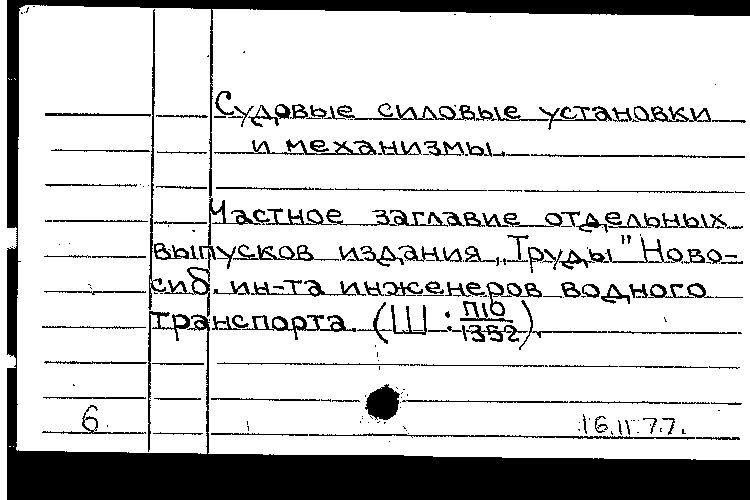 Судовые силовые установки
и механизмы.
Частное заглавие отдельных
выпусков издания „Труды" Ново=
сиб. ин-та инженеров водного
транспорта. (Ш : П10/1352).
6
16.11.77.